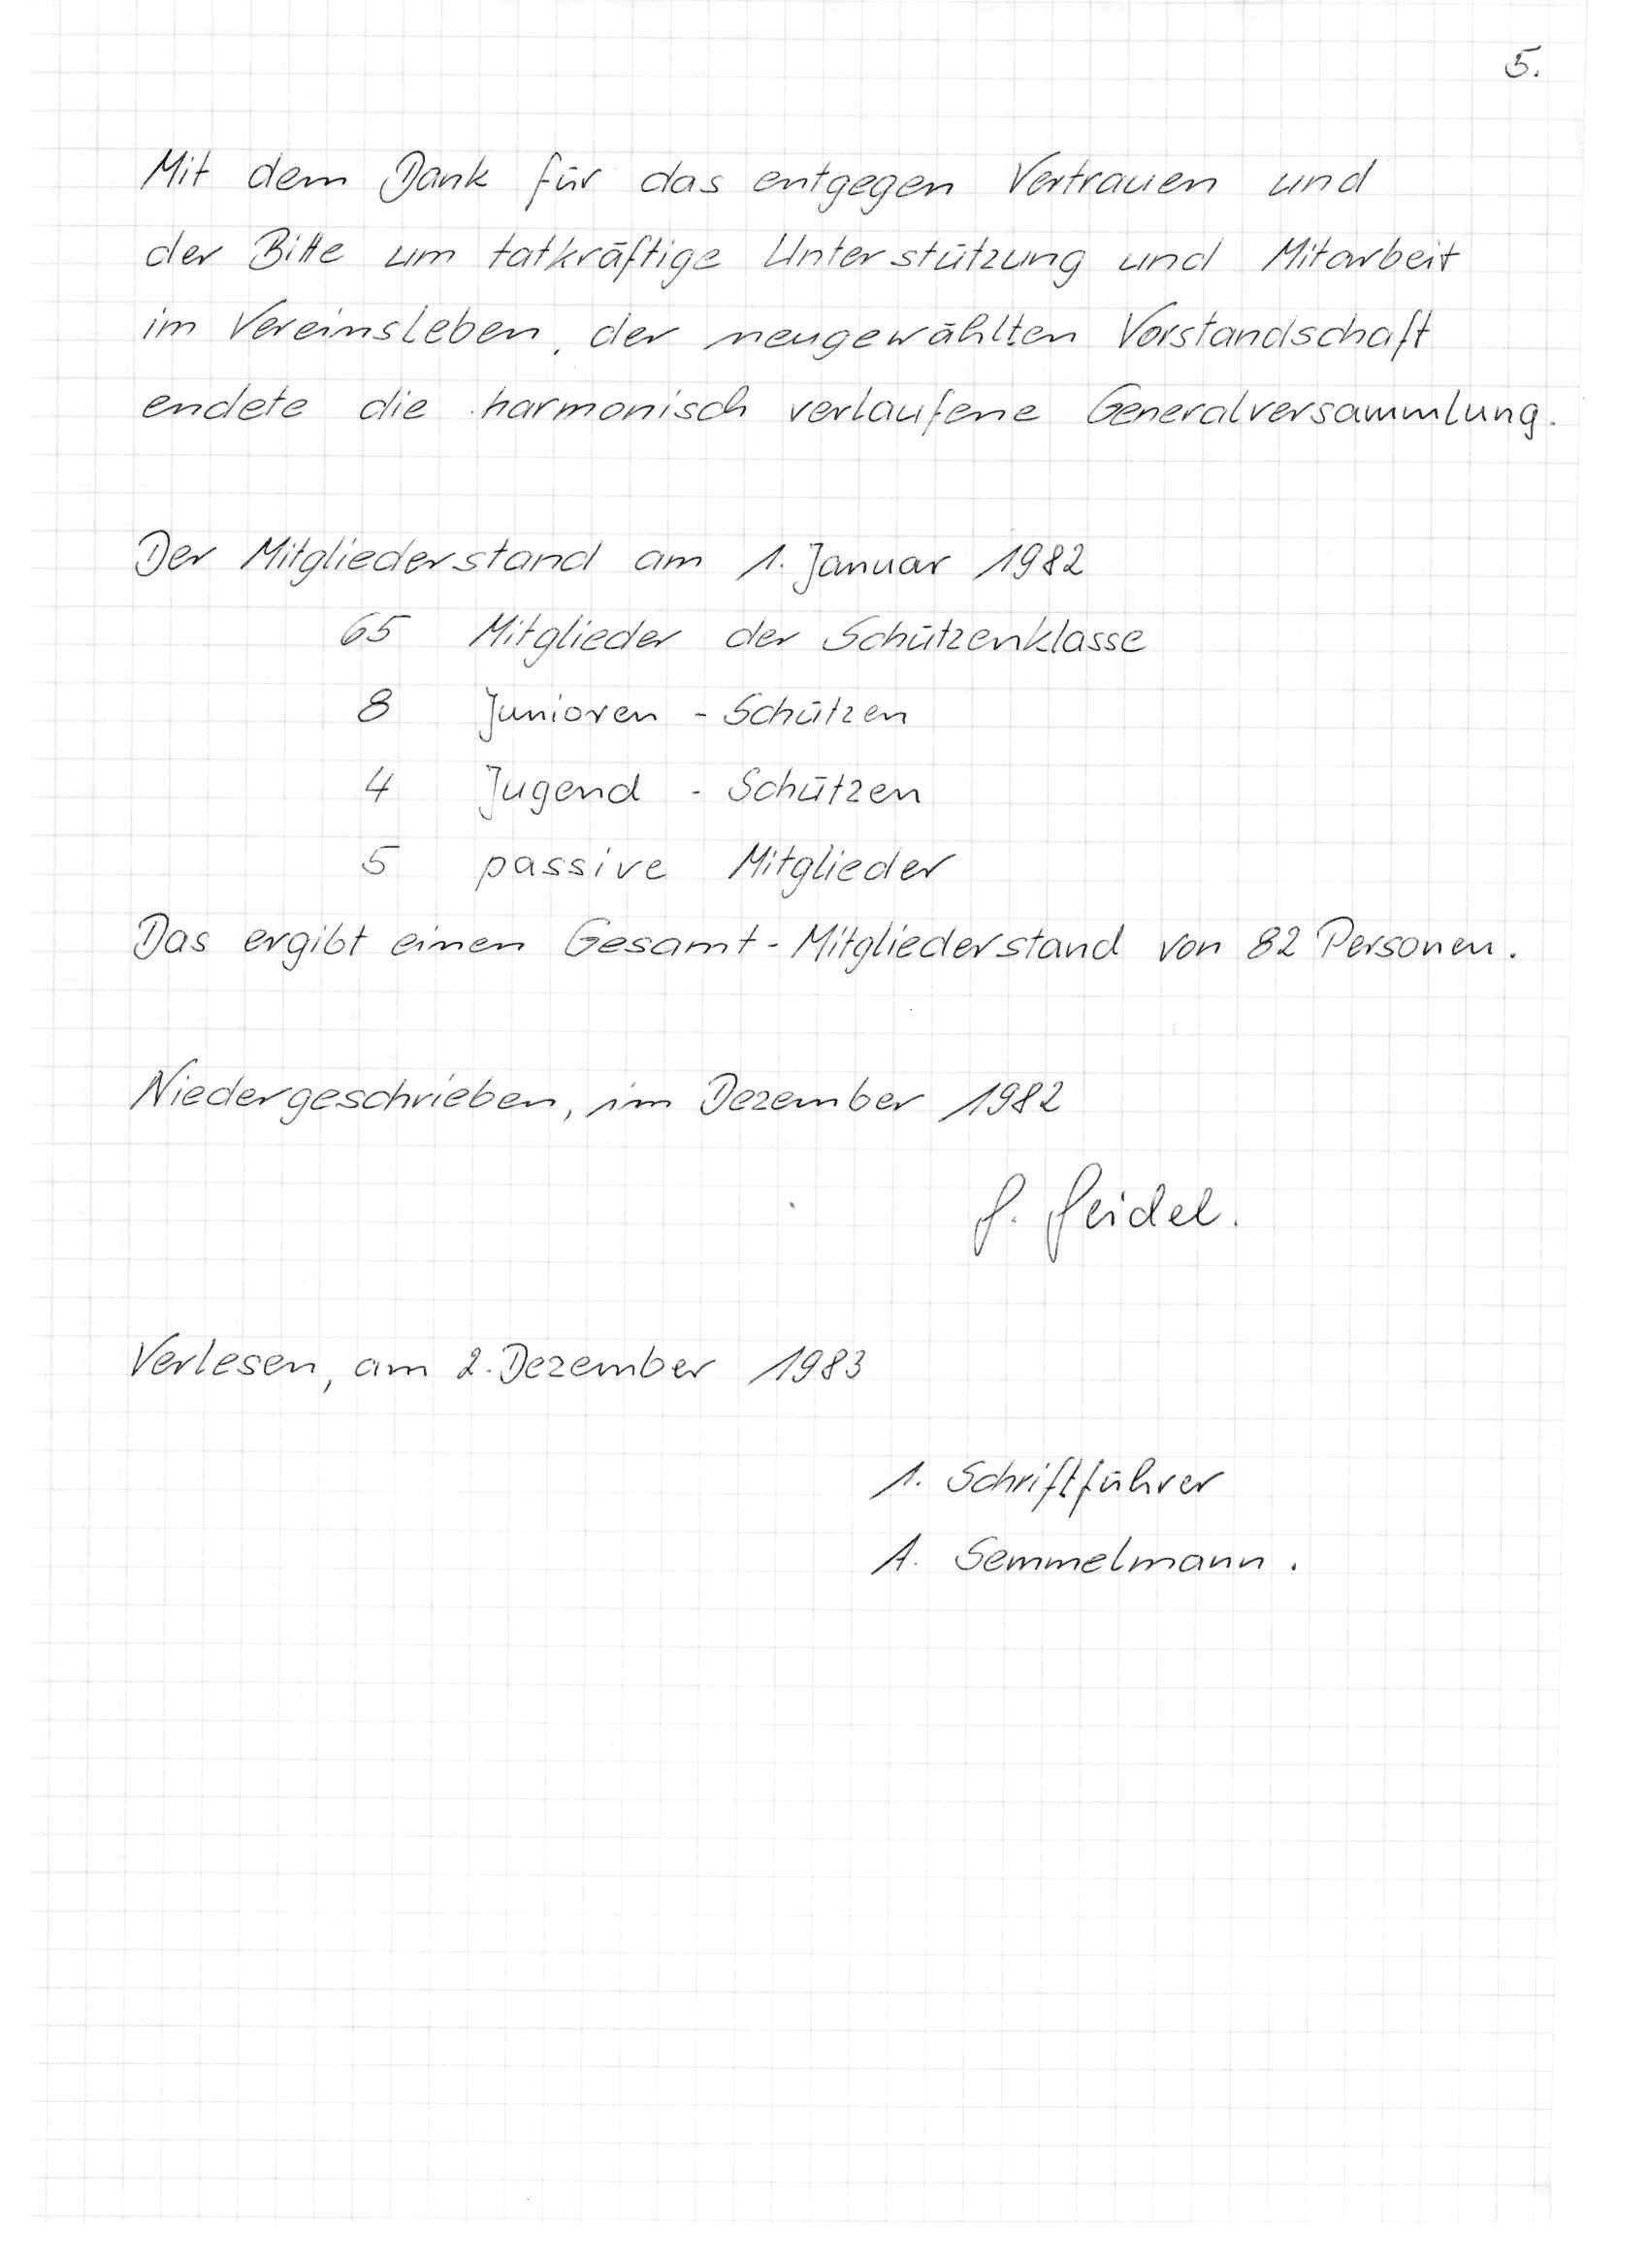 5.
Mit dem Dank für das entgegen Vertrauen und
der Bitte um tatkräftige Unterstützung und Mitarbeit
im Vereinsleben, der neugewählten Vorstandschaft
endete die harmonisch verlaufene Generalversammlung.
Der Mitgliederstand am 1. Januar 1982
65 Mitglieder der Schützenklasse
8 Junioren - Schützen
4 Jugend - Schützen
5 passive Mitglieder
Das ergibt einen Gesamt-Mitgliederstand von 82 Personen.
Niedergeschrieben, im Dezember 1982
Verlesen, am 2. Dezember 1983
1. Schriftführer
A. Semmelmann.